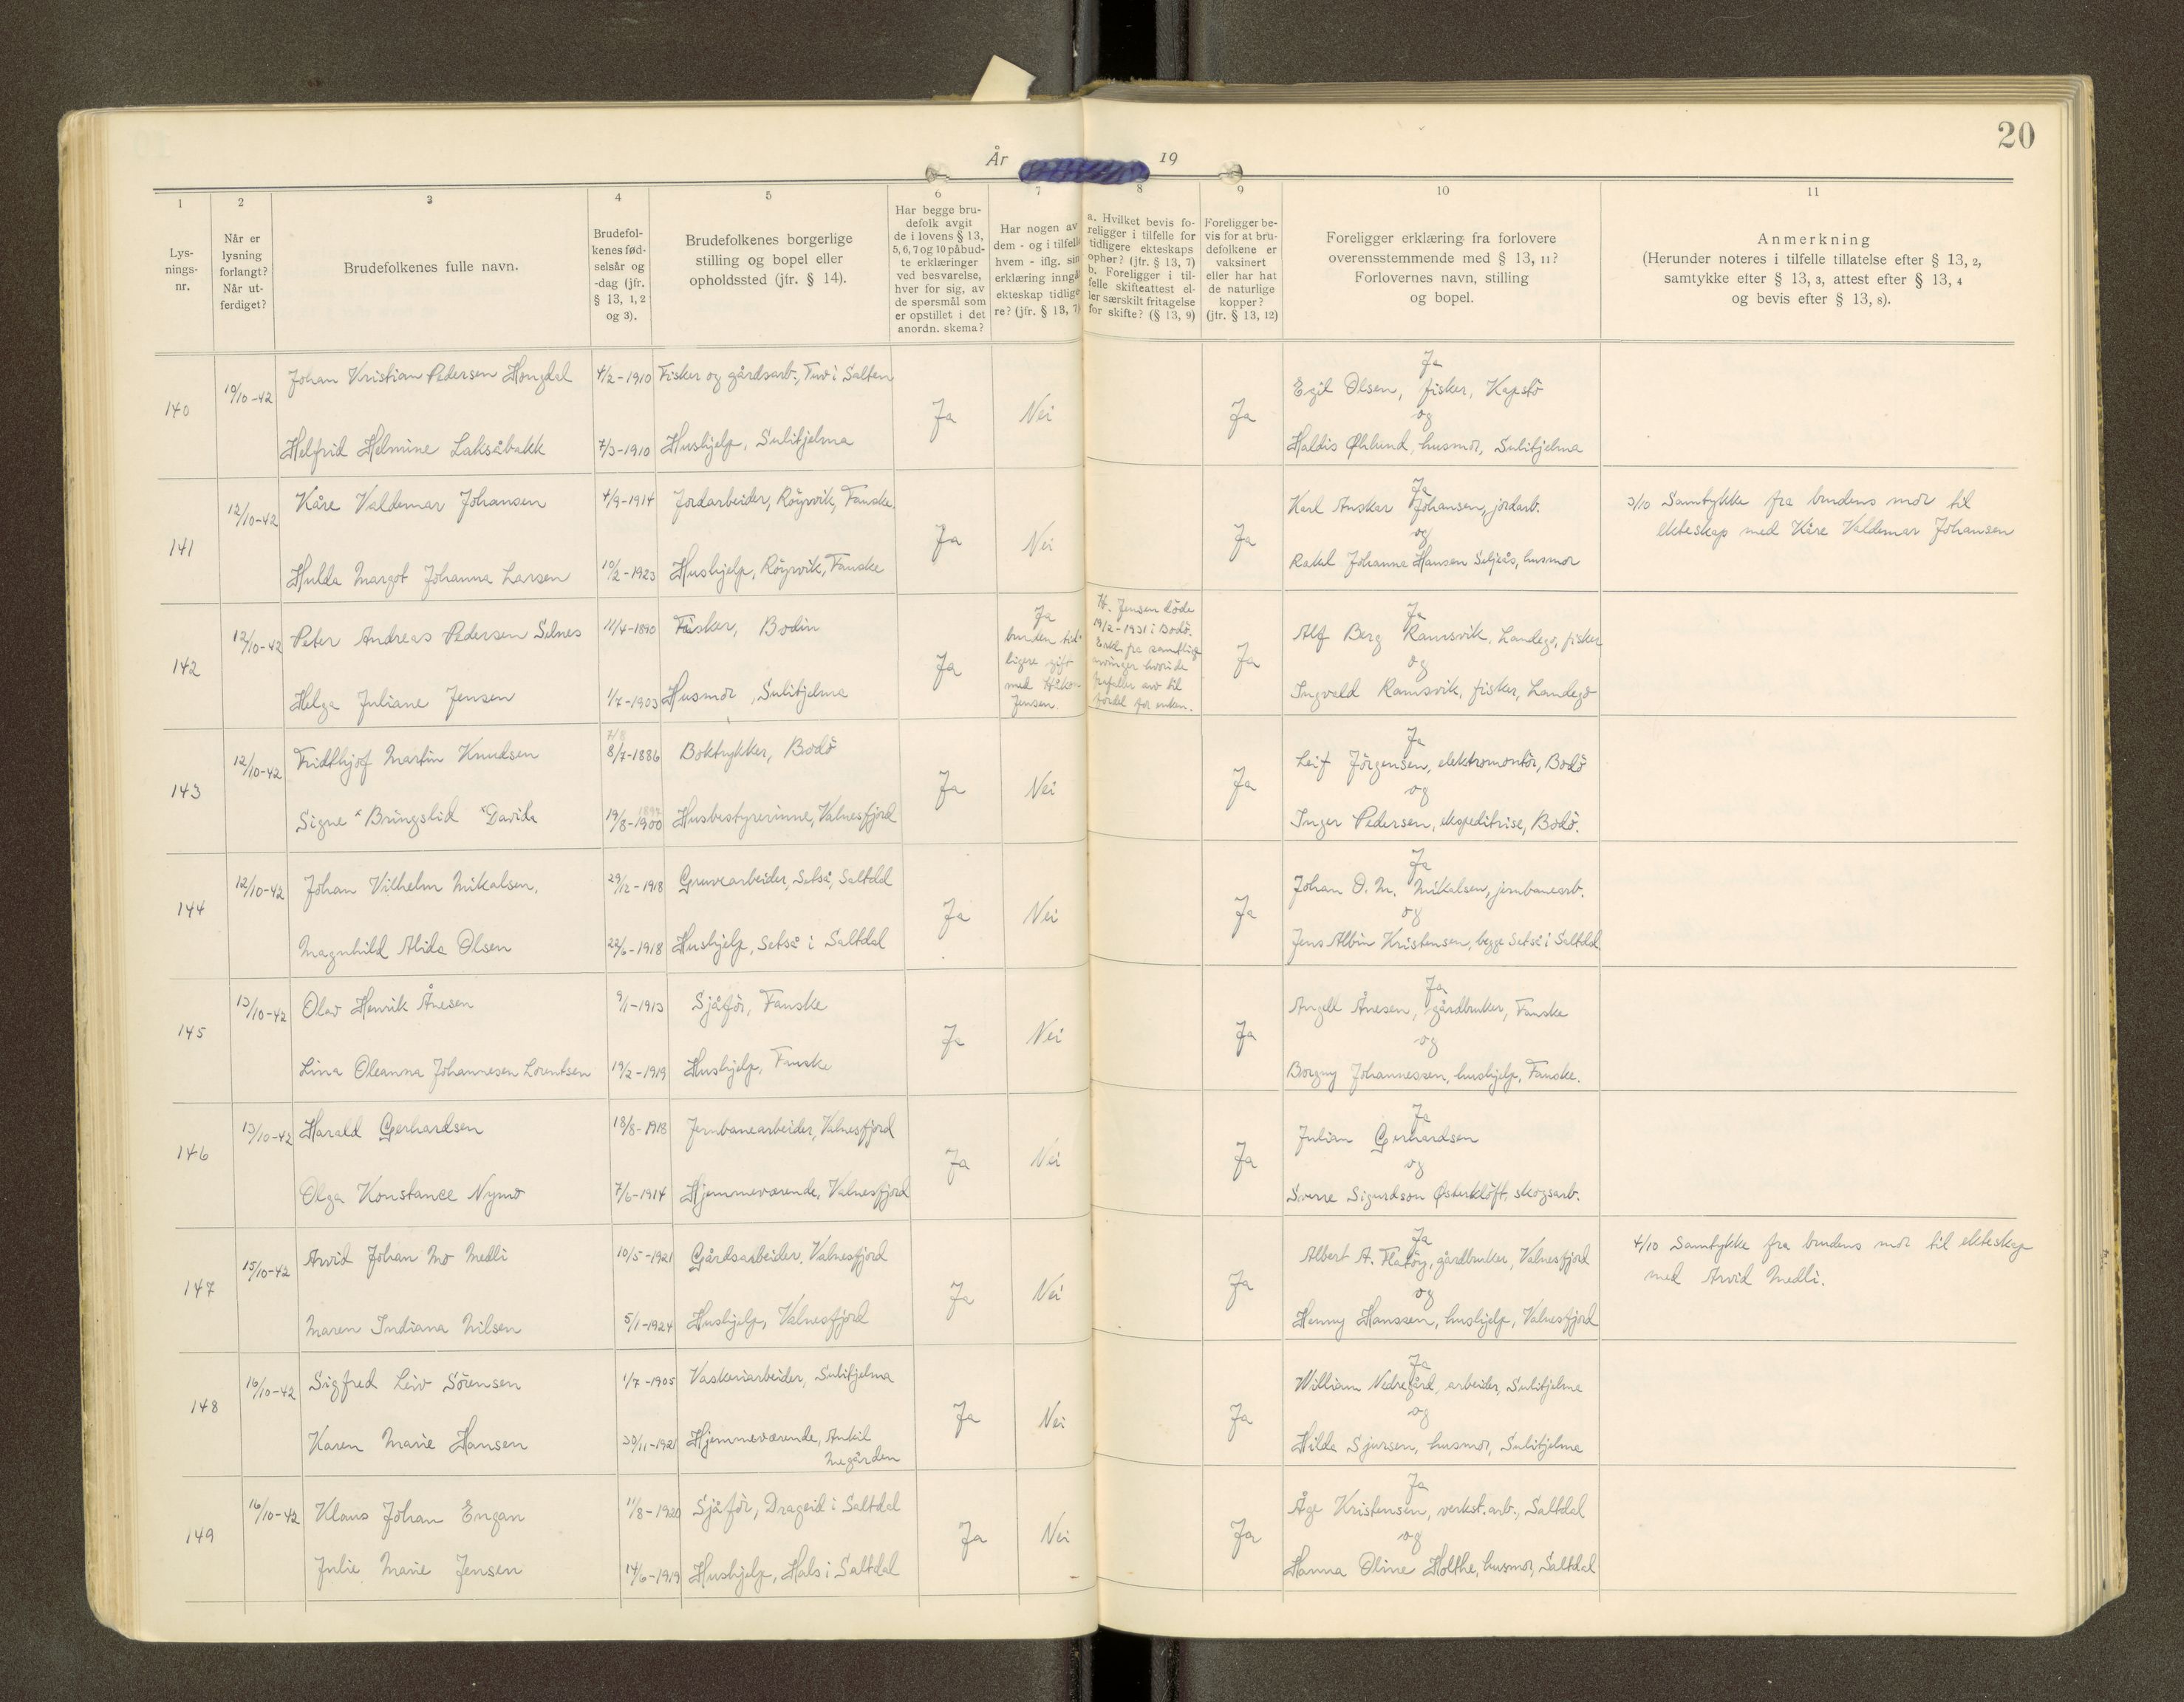 20
År 19
1 2 3 4 5 6 7 8 9 10 11
Lys-
nings-
nr.
Når er
lysning
forlangt?
Når ut-
ferdiget?
Brudefolkenes fulle navn.
Brudefol-
kenes fød-
selsår og
-dag (jfr.
§ 13, 1, 2
og 3).
Brudefolkenes borgerlige
stilling og bopel eller
opholdssted (jfr. § 14).
Har begge bru-
defolk avgit
de i lovens § 13,
5, 6, 7 og 10 påbud-
te erklæringer
ved besvarelse,
hver for sig, av
de spørsmål som
er opstillet i det
anordn. skema?
Har nogen av
dem - og i tilfelle
hvem - iflg. sin
erklæring inngå
ekteskap tidlige-
re? (jfr. § 13, 7)
a. Hvilket bevis fo-
religger i tilfelle for
tidligere ekteskaps
ophør? (jfr. § 13, 7)
b. Foreligger i til-
felle skifteattest el-
ler særskilt fritagelse
for skifte? (§ 13, 9)
Foreligger be-
vis for at bru-
defolkene er
vaksinert
eller har hat
de naturlige
kopper?
(jfr. § 13, 12)
Foreligger erklæring fra forlovere
overensstemmende med § 13, 11?
Forlovernes navn, stilling
og bopel.
Anmerkning
(Herunder noteres i tilfelle tillatelse efter § 13, 2,
samtykke efter § 13, 3, attest efter § 13, 4
og bevis efter § 13, 8).
140 19/10-42 Johan Kristian Pedersen Hongdal 4/2-1910 Fisker og gårdsarb., Tuv i Salten
Helfrid Helmine Laksåbakk 7/3-1910 Hushjelp, Sulitjelma
Ja Nei Ja
Ja
Egil Olsen, fisker, Kapstø
og
Haldis Øhlund, husmor, Sulitjelma
141 12/10-42 Kåre Valdemar Johansen 4/9-1914 Jordarbeider, Röyrvik, Fauske.
Hulda Margot Johanna Larsen 10/2-1923 Hushjelp, Röyrvik, Fauske
Ja Nei Ja
Ja
Karl Anskar Johansen, jordarb.
og
Rakel Johanna Hansen Seljeås, husmor
3/10 Samtykke fra brudens mor til
ekteskap med Kåre Valdemar Johansen
142 12/10-42 Peter Andreas Pedersen Selnes 11/4-1890 Fisker, Bodin
Helga Juliane Jensen 1/7-1903 Husmor, Sulitjelma
Ja
Ja
bruden tid-
ligere gift
med Håkon
Jensen.
H. Jensen døde
19/2-1931 i Bodö.
Erkl. fra samtlige
arvinger hvori de
frafaller arv til
fordel for enken.
Ja
Ja
Alf Berg Ramsvik, Landego, fisker
og
Ingvald Ramsvik, fisker, Landego
143 12/10-42 Fridthjof Martin Knudsen 7/8 8/7-1886 Boktrykker, Bodö
Signe × Bringslid × Davida 19/8-1900 1897 Husbestyrerinne, Valnesfjord
Ja Nei Ja
Ja
Leif Jörgensen, elektromontör, Bodö
og
Inger Pedersen, ekspeditrise, Bodö.
144 12/10-42 Johan Vilhelm Mikalsen. 29/12-1918 Gruvearbeider, Setså, Saltdal
Magnhild Alida Olsen 22/6-1918 Hushjelp, Setså i Saltdal
Ja Nei Ja
Ja
Johan O. M. Mikalsen, jernbanearb.
og
Jens Albin Kristensen, begge Setså i Saltdal
145 13/10-42 Olav Henrik Ånesen 9/1-1913 Sjåför, Fauske
Lina Oleanna Johannesen Lorentsen 19/2-1919 Hushjelp, Fauske
Ja Nei Ja
Ja
Angell Ånesen, gårdbruker, Fauske
og
Borgny Johannessen, hushjelp, Fauske.
146 13/10-42 Harald Gerhardsen 18/8-1918 Jernbanearbeider, Valnesfjord
Olga Konstance Nymo 7/6-1914 Hjemmeværende, Valnesfjord
Ja Nei Ja
Ja
Julian Gerhardsen
og
Sverre Sigurdson Østerklöft, skogsarb.
147 15/10-42 Arvid Johan Mo Medli 10/5-1921 Gårdsarbeider, Valnesfjord
Maren Indiana Nilsen 5/1-1924 Hushjelp, Valnesfjord
Ja Nei Ja
Ja
Albert A. Flatöy, gårdbruker, Valnesfjord
og
Henny Hanssen, hushjelp, Valnesfjord
4/10 Samtykke fra brudens mor til ekteskap
med Arvid Medli.
148 16/10-42 Sigfred Leiv Sörensen 1/7-1905 Vaskeriarbeider, Sulitjelma
Karen Marie Hansen 30/11-1921 Hjemmeværende, Ankil
Negården
Ja Nei Ja
Ja
William Nedregård, arbeider, Sulitjelma
og
Hilda Sjursen, husmor, Sulitjelma
149 16/10-42 Klaus Johan Engan 11/8-1920 Sjåför, Drageid i Saltdal
Julie Marie Jensen 14/6-1919 Hushjelp, Hals i Saltdal
Ja Nei Ja
Ja
Åge Kristensen, verkst.arb., Saltdal
og
Hanna Oline Holthe, husmor, Saltdal